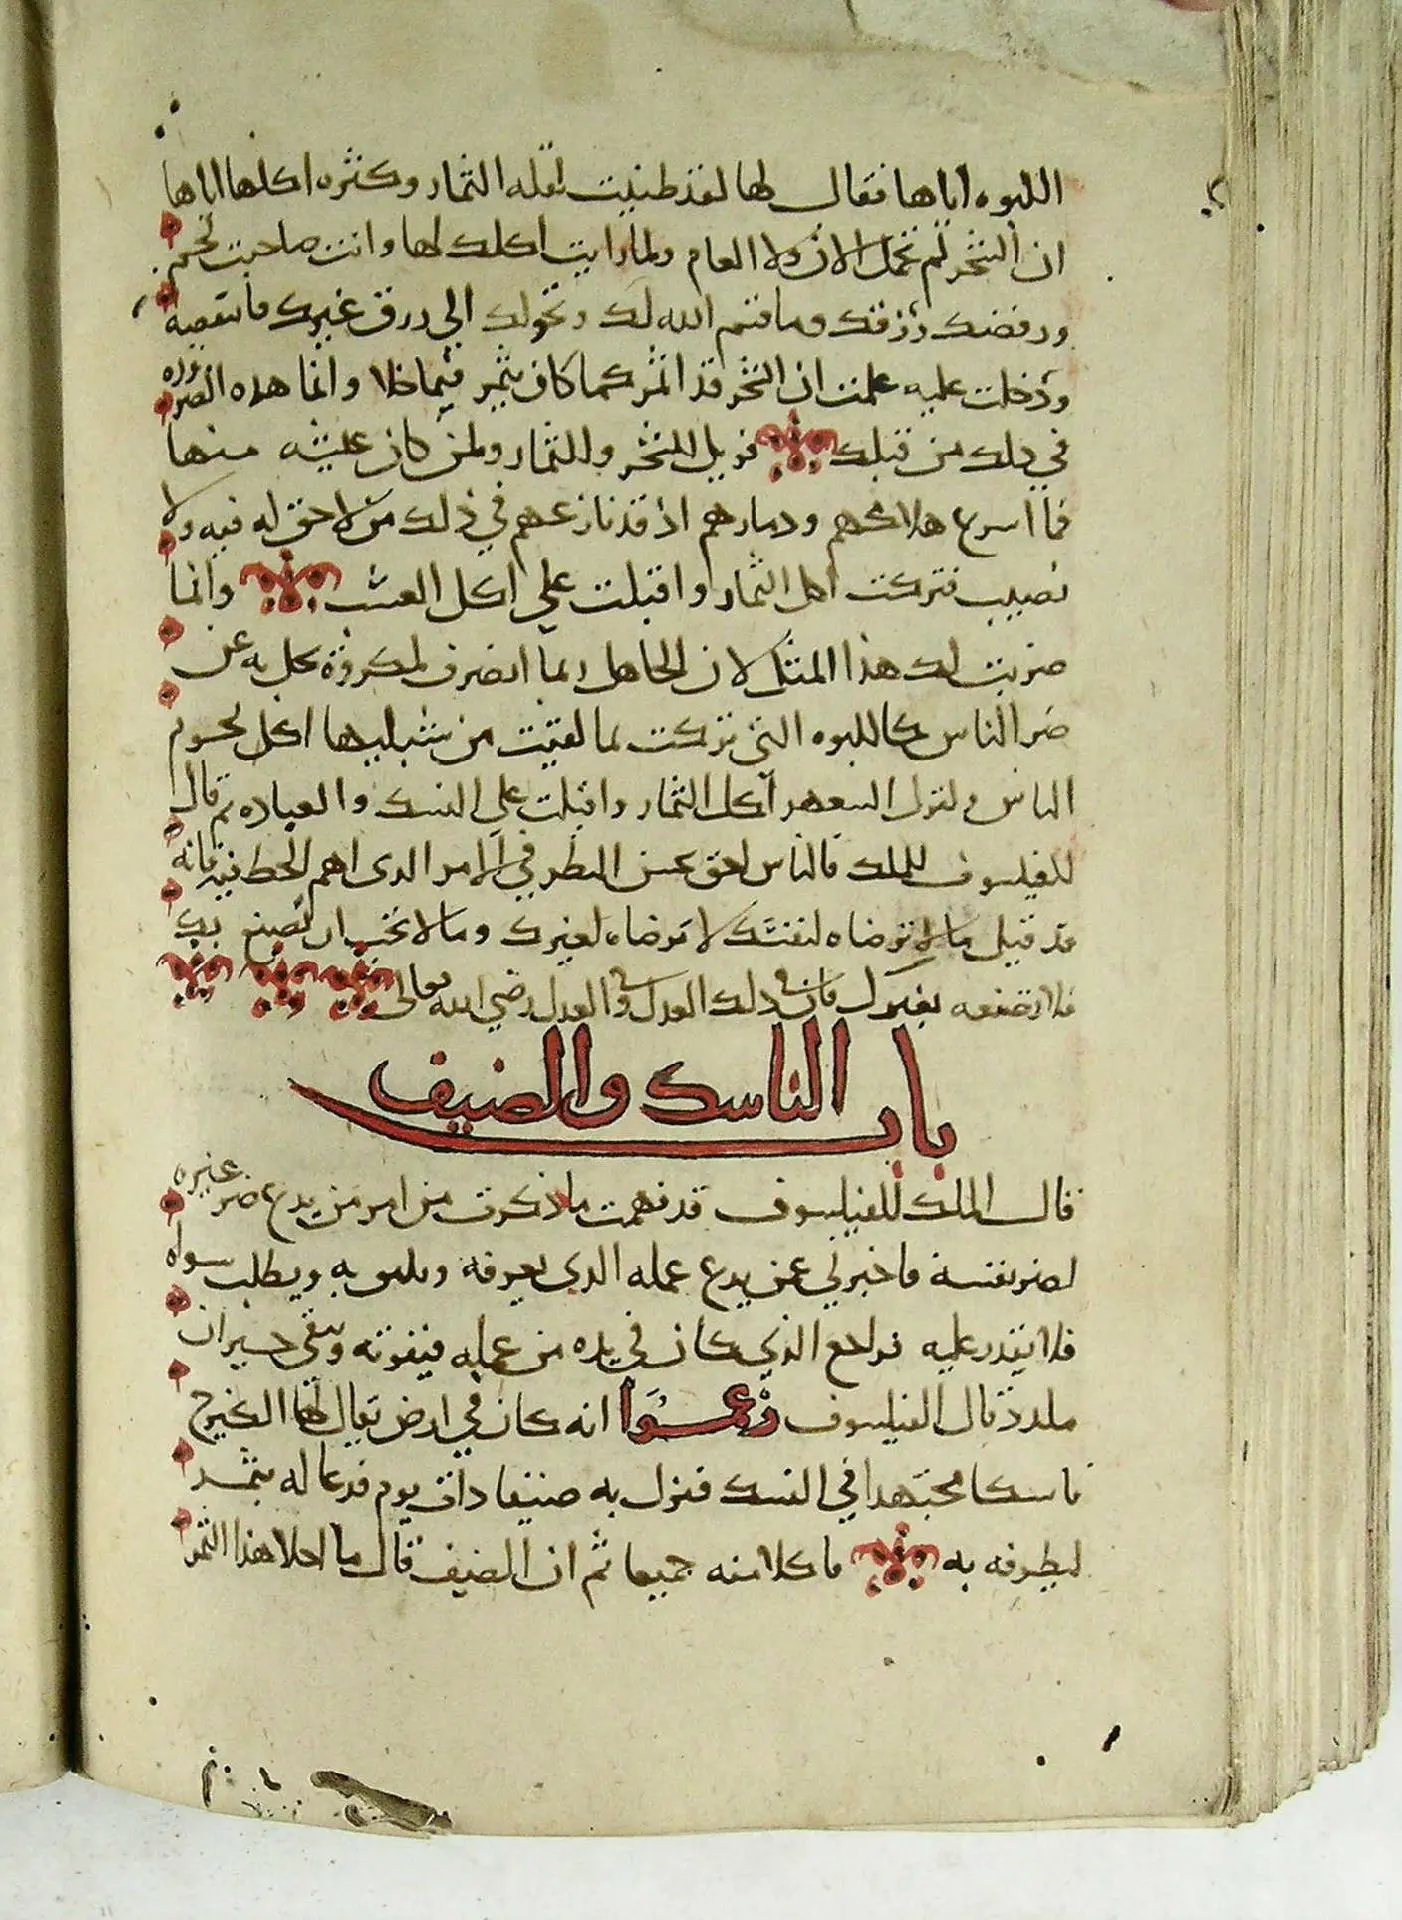 اللبوه اياها فقال لها لقد ظنيت لقله الثمار وكثره اكلها اياها
ان الشجر لم تحمل الان ولا العام ولما رايت اكلك لها وانت صاحبت لحم
ورفضك رزقك وما قسم الله لك وتحولك الي رزق غيرك فانتقصيه
ودخلت عليه علمت ان الشجر قد اثمر كما كان يثمر فيما خلا وانما هذه الضروره
في دلك من قبلك فويل للشجر وللثمار ولمن كان عليشه منها
فما اسرع هلاكهم ودمارهم اذ قد نازعهم في ذلك من لا حق له فيه ولا
نصيب فتركت اكل الثمار واقبلت علي اكل العشب وانما
ضربت لك هذا المثل لان الجاهل ربما انصرف لمكروة يحل به عن
ضر الناس كاللبوه التي تركت بما لقيت من شبليها اكل لحوم
الناس ولقول السعهر اكل الثمار واقبلت علي النسك والعباده ثم قال
للفيلسوف للملك فالناس احق بحسن النظر في الامر الدى اهم الحظ فيه فانه
قد قيل ما لا ترضاه لنفسك لا ترضاه لغيرك وما لا تحب ان يصنع بك
فلا تصنعه بغيرك فان في دلك العدل وفي العدل رضي الله تعالى
باب الناسك والضيف
قال الملك للفيلسوف قد فهمت ما ذكرت من امر من يدع ضر غيره
لضر نفسه فاخبرني عمن يدع عمله الدي يعرفه ويليق به ويطلب سواه
فلا يقدر عليه فيراجع الذي كان في يده من عمله فيفوته ويبقى حيران
ملدد قال الفيلسوف زعموا انه كان في ارض يقال لها الكرخ
ناسكا مجتهدا في النسك فنزل به ضيفا دات يوم فدعا له بثمر
ليطرفه به فاكلا منه جميعا ثم ان الضيف قال ما احلا هذا الثمر